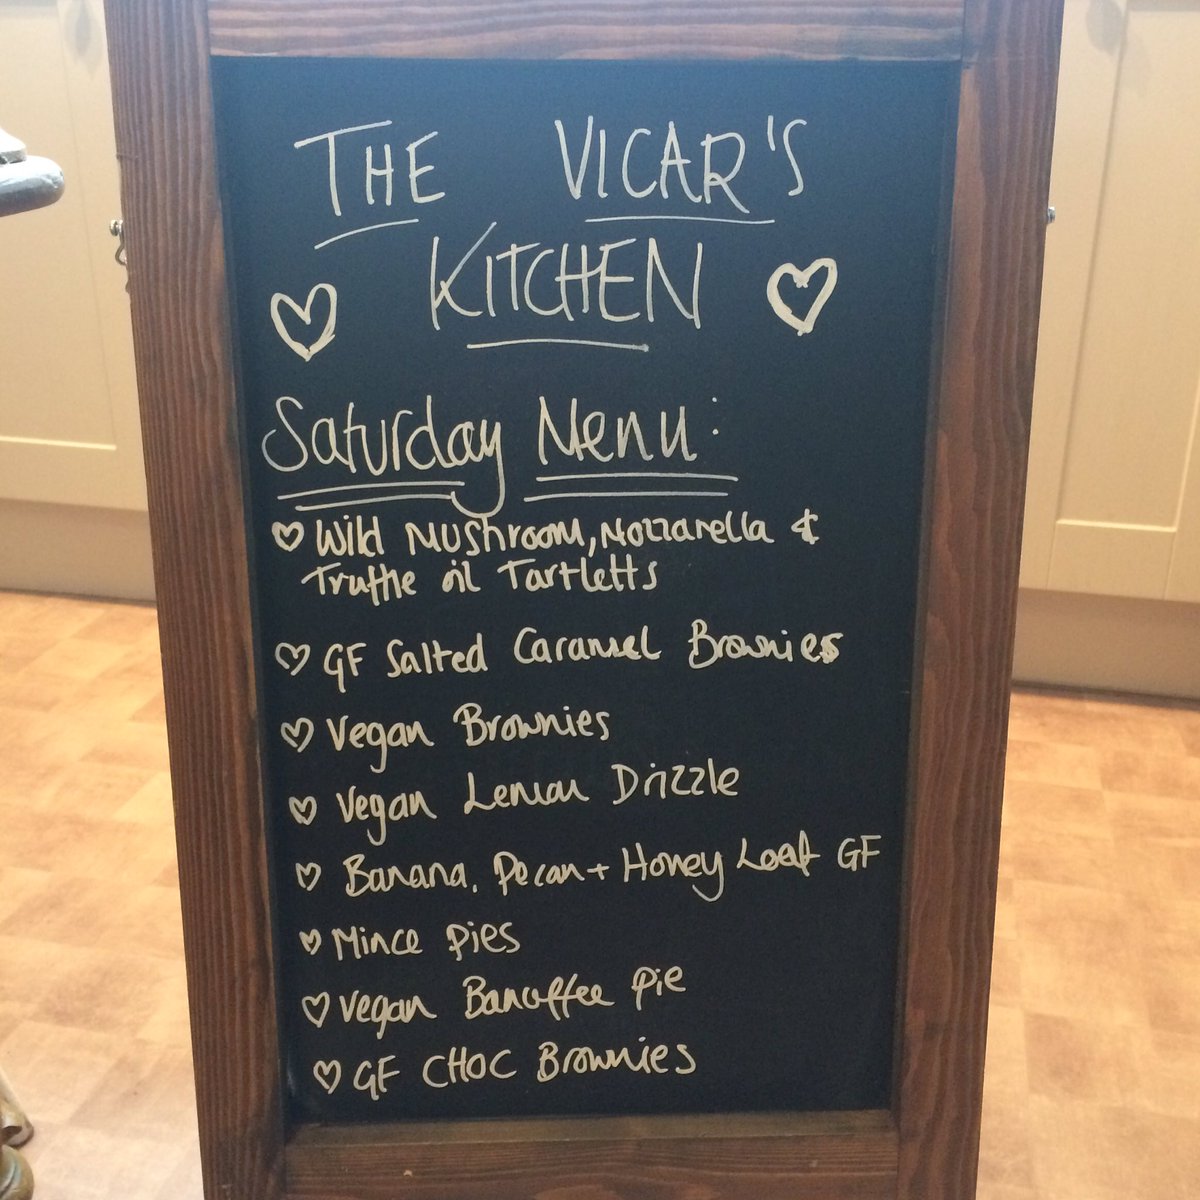 THE VICAR'S
KITCHEN
Saturday Menu:
Wild Mushroom, Mozzarella &
Truffle oil Tartletts
GF Salted Caramel Brownies
Vegan Brownies
Vegan Lemon Drizzle
Banana, Pecan + Honey Loaf GF
Mince Pies
Vegan Banoffee Pie
GF CHOC Brownies